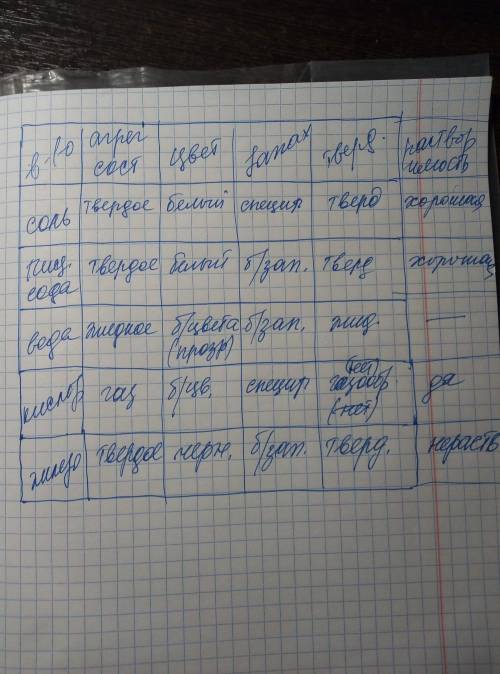 в-во агрег сост цвет запах тверд. раствор имость
соль твердое белый специф. тверд хорошая
пищ. сода твердое белый б/зап. тверд хорошая
вода жидкое б/цвета (прозр) б/зап. жид. —
кислор газ б/цв. специф (нет) газообр. (нет) да
железо твердое черн. б/зап. тверд. нераств